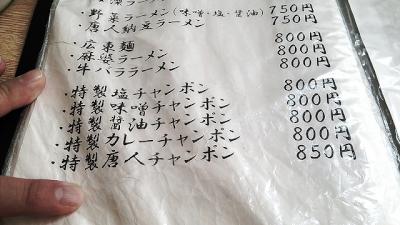 ・野菜ラーメン(味噌・塩・醤油) 750円
・唐人納豆ラーメン 750円
・広東麺 800円
・麻婆ラーメン 800円
・牛バララーメン 800円
・特製塩チャンポン 800円
・特製味噌チャンポン 800円
・特製醤油チャンポン 800円
・特製カレーチャンポン 800円
・特製唐人チャンポン 850円